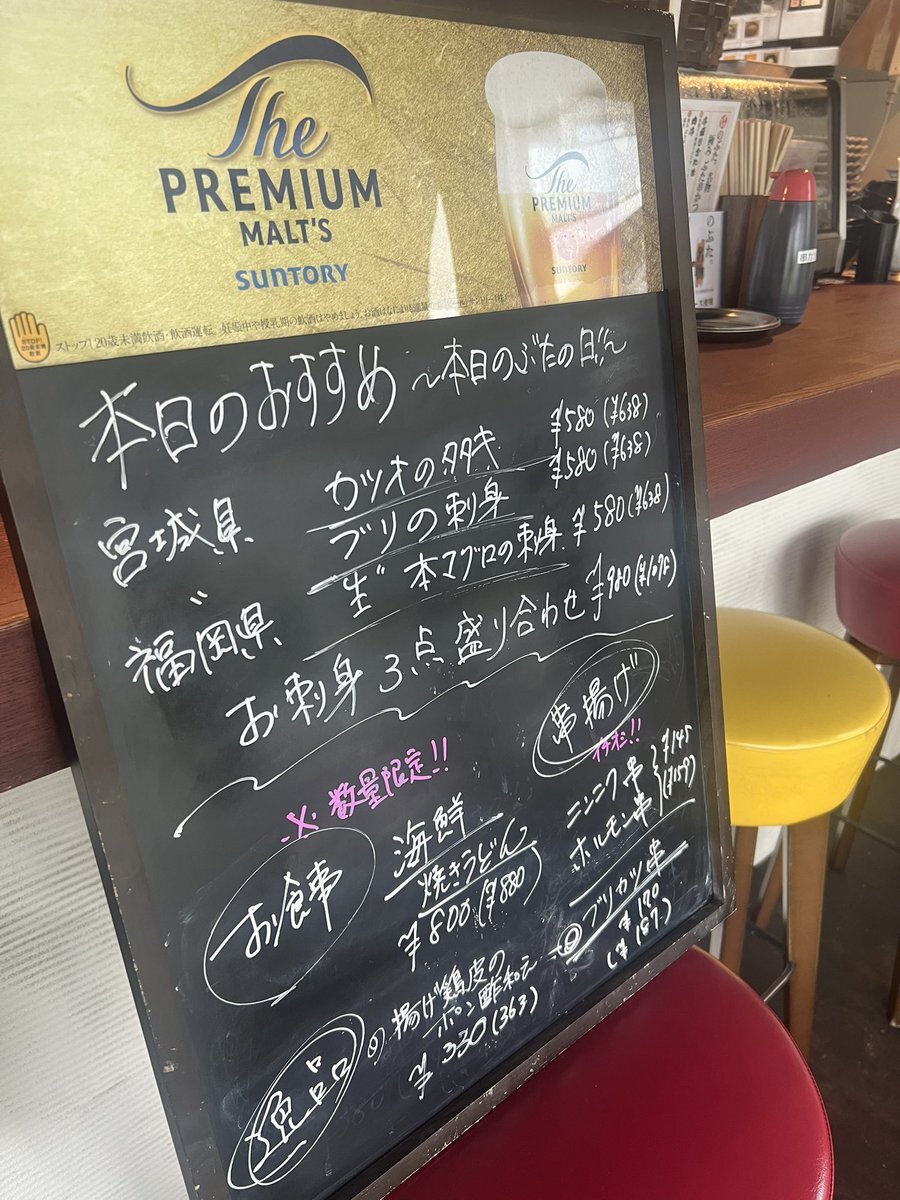 The
PREMIUM
MALT'S
SUNTORY
The
PREMIUM
MALT'S
SUNTORY
STOP!
ストップ!20歳未満飲酒・飲酒運転。妊娠中や授乳期の飲酒はやめましょう。
本日のおすすめ 〜本日のぶたの日!!〜
宮城県 カツオのタタキ ¥580(¥638)
〃 ブリの刺身 ¥580(¥638)
福岡県 "生" 本マグロの刺身 ¥580(¥638)
お刺身 3点 盛り合わせ ¥980(¥1078)
※数量限定!!
お食事
海鮮
焼きうどん
¥800(¥880)
串揚げ
イチオシ!!
ニンニク串
ホルモン串
¥145
(¥159)
ブリカツ串
¥170
(¥187)
逸品
揚げ鶏皮の
ポン酢和え
¥330(363)
のぶた。